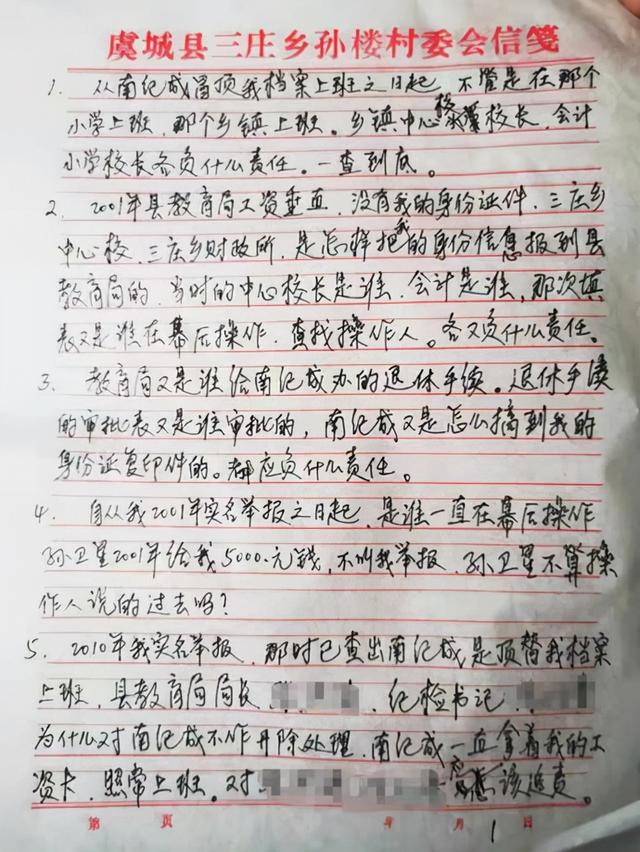 虞城县三庄乡孙楼村委会信笺
1. 从南纪成冒顶我档案上班之日起，不管是在那个
小学上班，那个乡镇上班。乡镇中心校校长，会计
小学校长各负什么责任。一查到底。
2. 2001年县教育局工资垂直，没有我的身份证件，三庄乡
中心校、三庄乡财政所，是怎样把我的身份信息报到县
教育局的，当时的中心校长是谁，会计是谁，那次填
表又是谁在幕后操作，查找操作人。各又负什么责任。
3. 教育局又是谁给南纪成办的退休手续。退休手续
的审批表又是谁审批的，南纪成又是怎么搞到我的
身份证复印件的。都应负什么责任。
4. 自从我2001年实名举报之日起，是谁一直在幕后操作
孙卫星2001年给我5000.元钱，不叫我举报，孙卫星不算操
作人说的过去吗？
5. 2010年我实名举报，那时已查出南纪成是顶替我档案
上班，县教育局局长、纪检书记
为什么对南纪成不作开除处理，南纪成一直拿着我的工
资卡，照常上班。对应该追责。
第 页 年 月 1 日